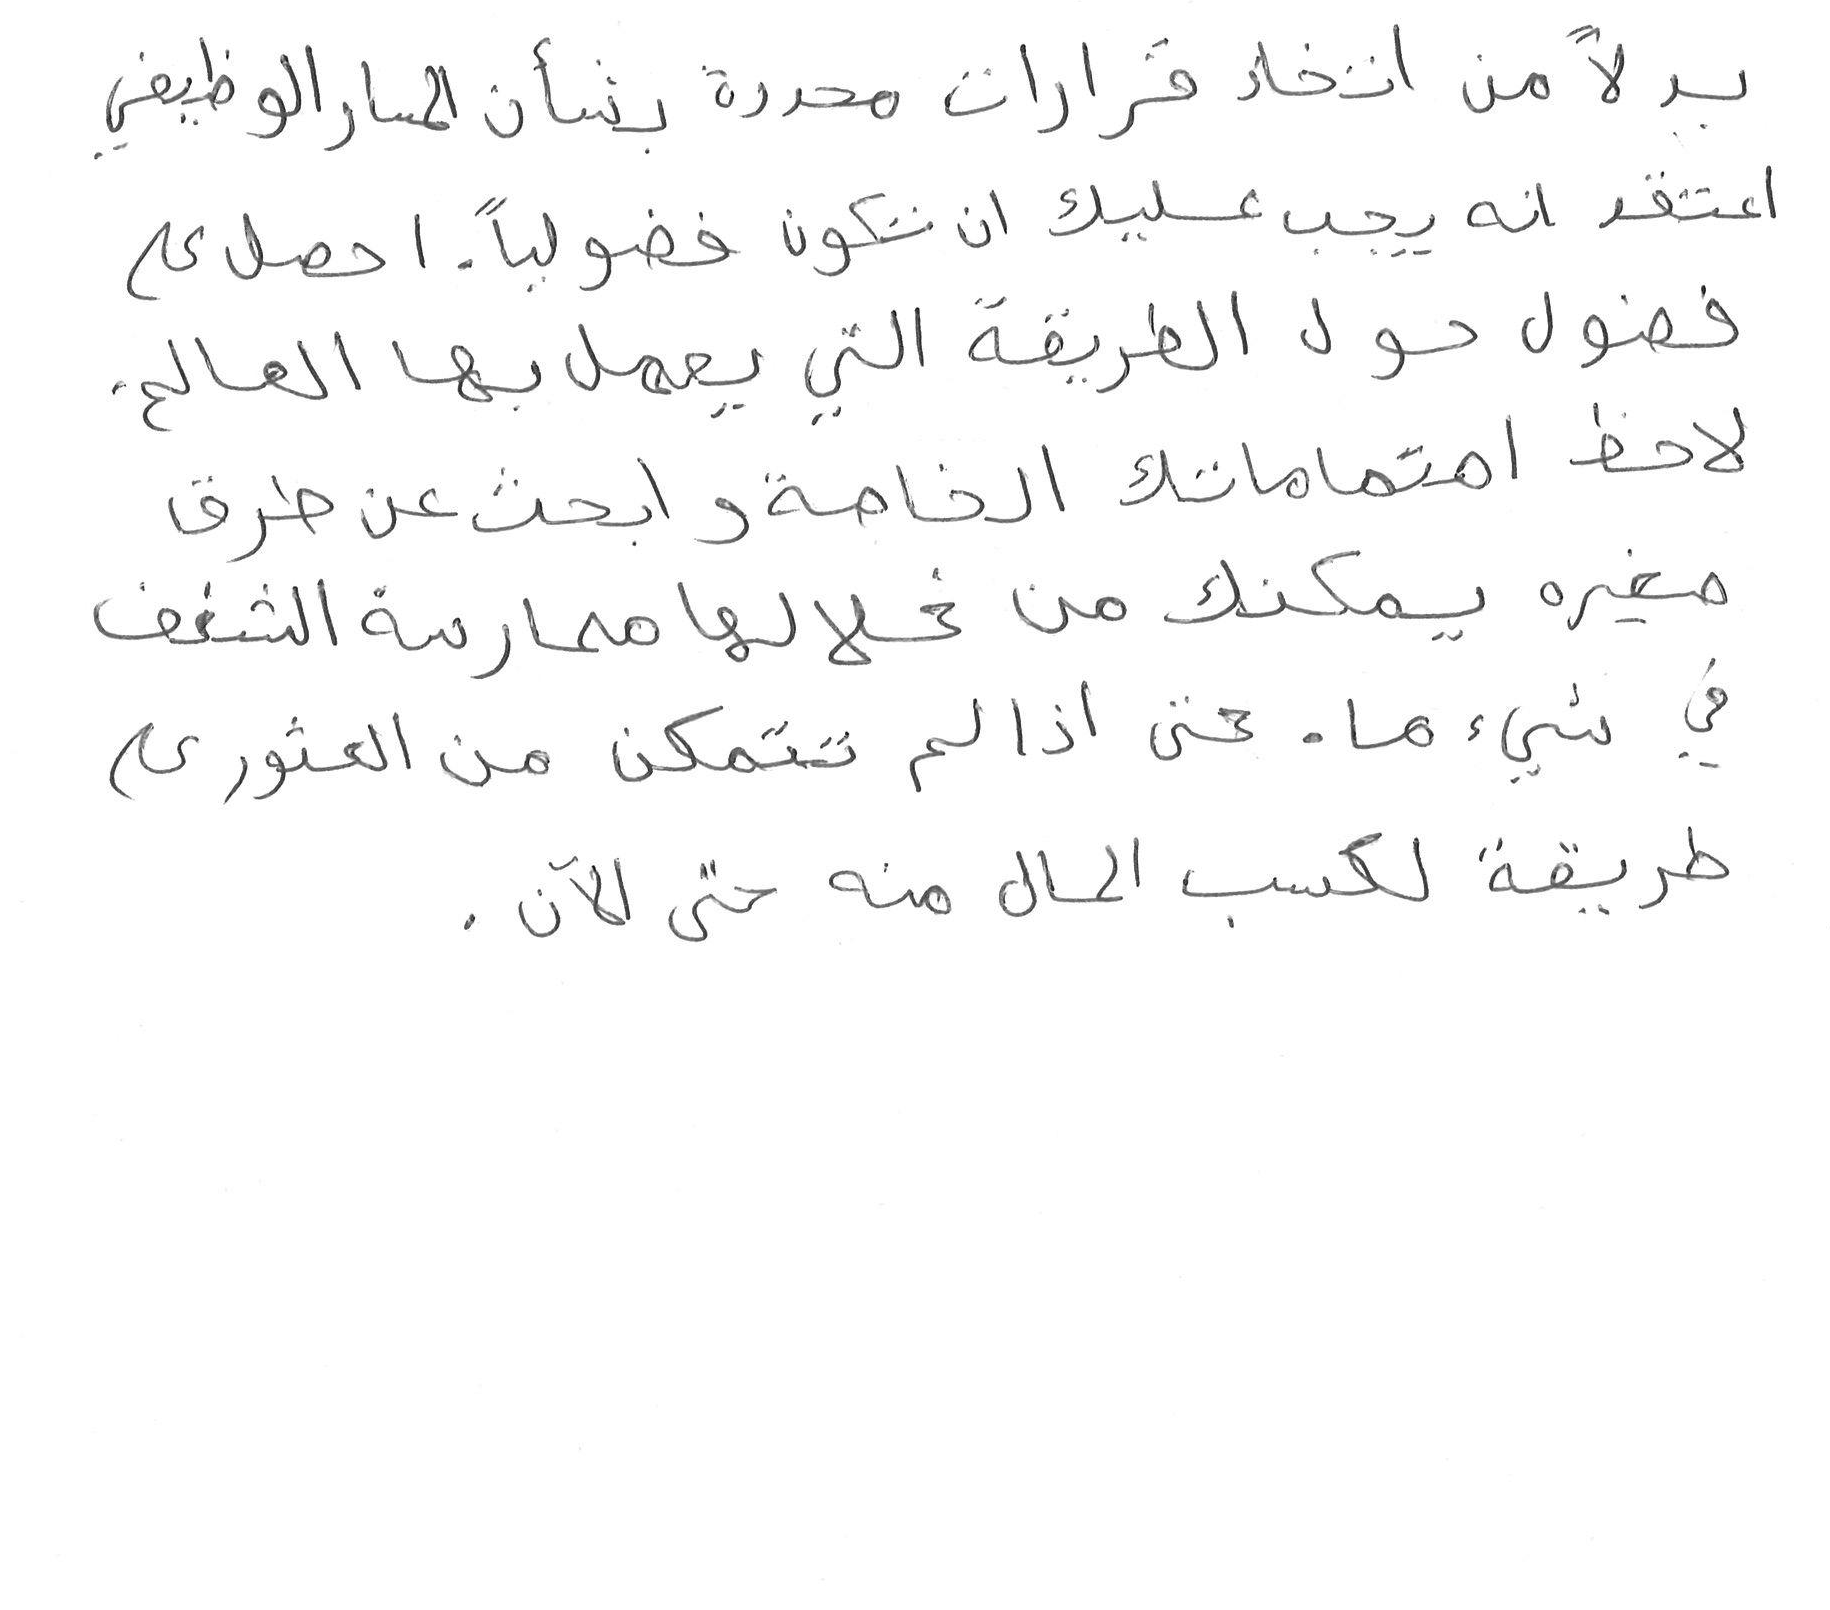 بدلاً من اتخاذ قرارات محددة بشأن المسار الوظيفي
اعتقد انه يجب عليك ان تكون فضولياً. احصل على
فضول حول الطريقة التي يعمل بها العالم.
لاحظ اهتماماتك الخاصة و ابحث عن طرق
صغيره يمكنك من خلالها ممارسة الشغف
في شيء ما. حتى اذا لم تتمكن من العثور على
طريقة لكسب المال منه حتى الآن.